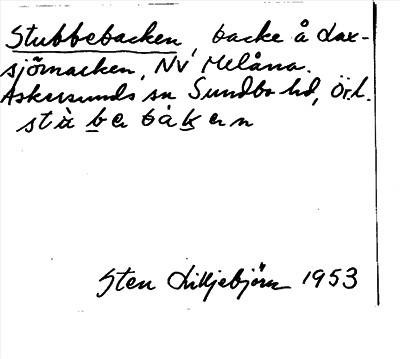 Stubbebacken, backe å Lax-
sjömarken, NV Melåna.
Askersunds sn Sundbo hd, Örl.
stù b̲e bàk̲ern
Sten Liljebjörn 1953